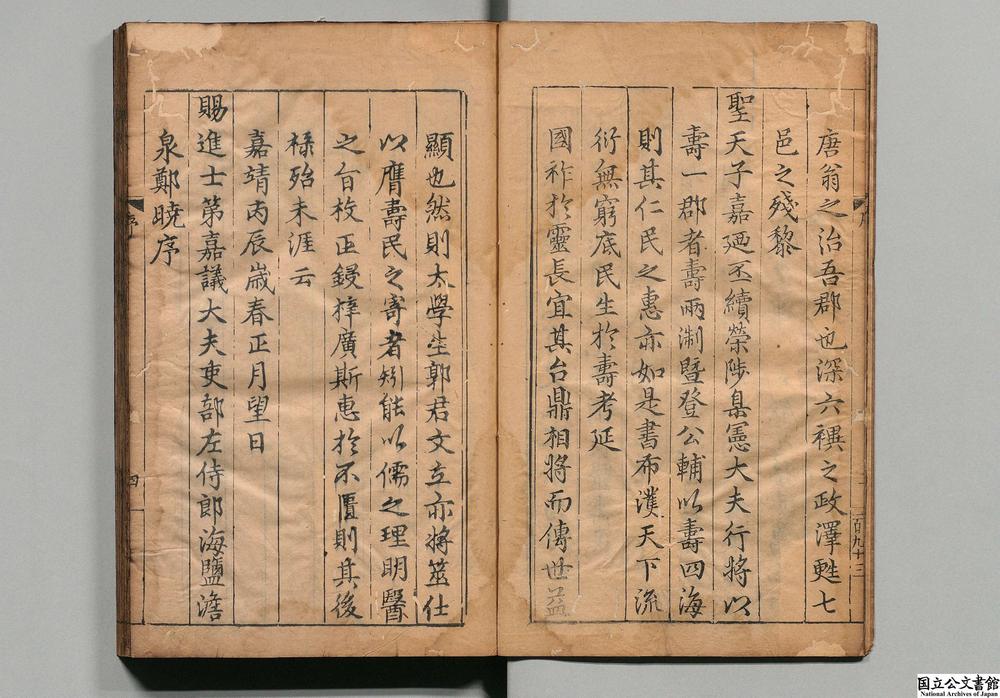 唐翁之治吾郡也深六禩之政澤甦七
邑之殘黎
聖天子嘉廼丕續榮陟臬憲大夫行將以
壽一郡者壽兩淛暨登公輔以壽四海
則其仁民之惠亦如是書布濩天下流
衍無窮底民生於壽考延
國祚於靈長宜其台鼎相將而傳世益
顯也然則太學生郭君文立亦將筮仕
以膺壽民之寄者矧能以儒之理明醫
之旨校正鋟梓廣斯惠於不匱則其後
祿殆未涯云
嘉靖丙辰歲春正月望日
賜進士第嘉議大夫吏部左侍郎海鹽澹
泉鄭曉序
序
四
百九十三
国立公文書館
National Archives of Japan